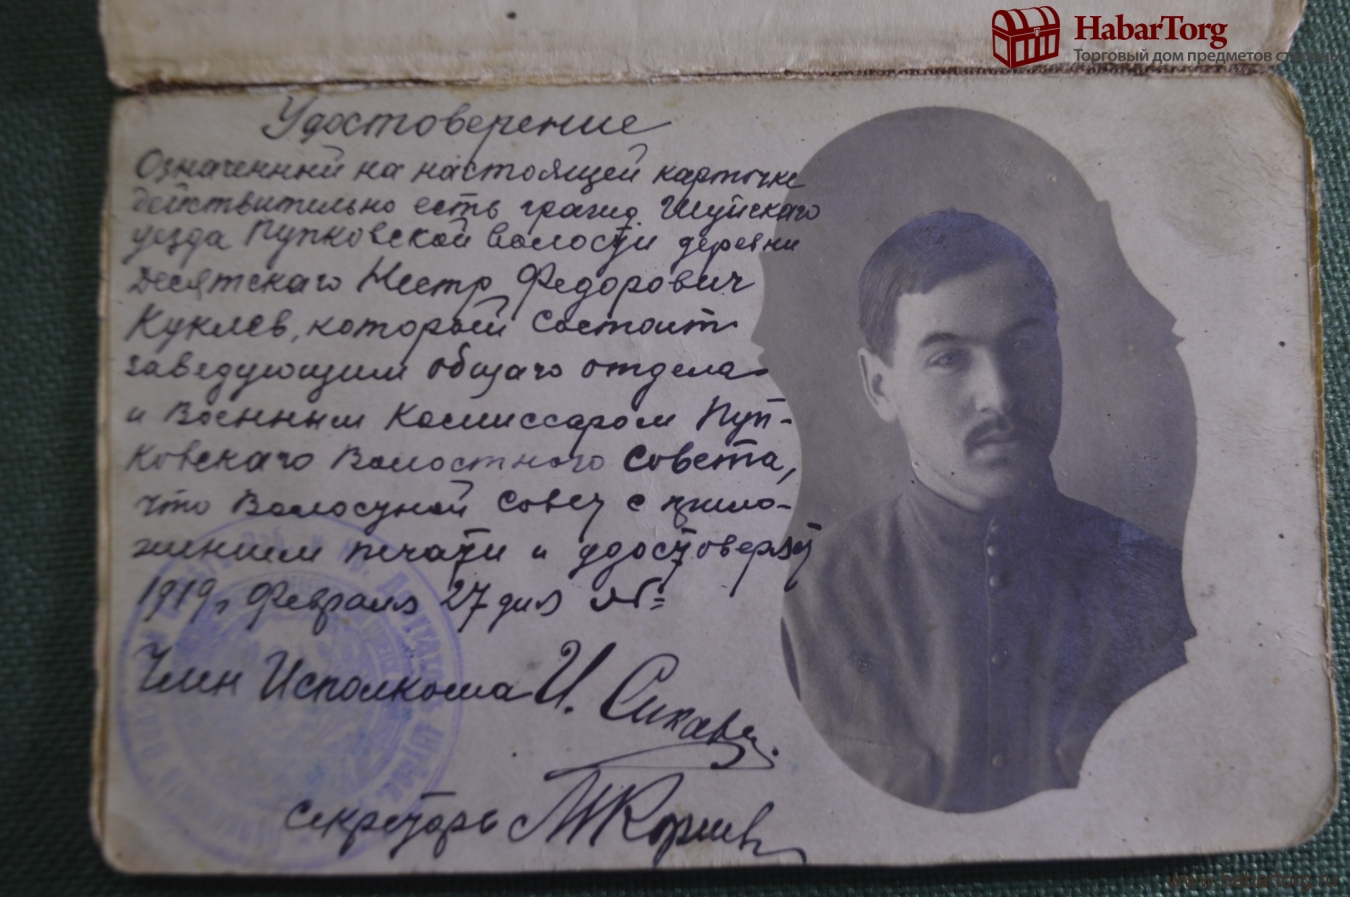 HabarTorg
Торговый дом предметов с
Удостоверение
Означенный на настоящей карточке
действительно есть гражд. Шуйскаго
уезда Пупковской волости деревни
Десятскаго Нестр Федорович
Куклев, который состоит
заведующим общаго отдела
и Военным Комиссаром Пуп-
ковскаго Волостного Совета,
что Волосной Совет с прило-
жением печати и удостоверяет
1919 г. Февраля 27 дня №=
Член Исполкома И.
Секретарь